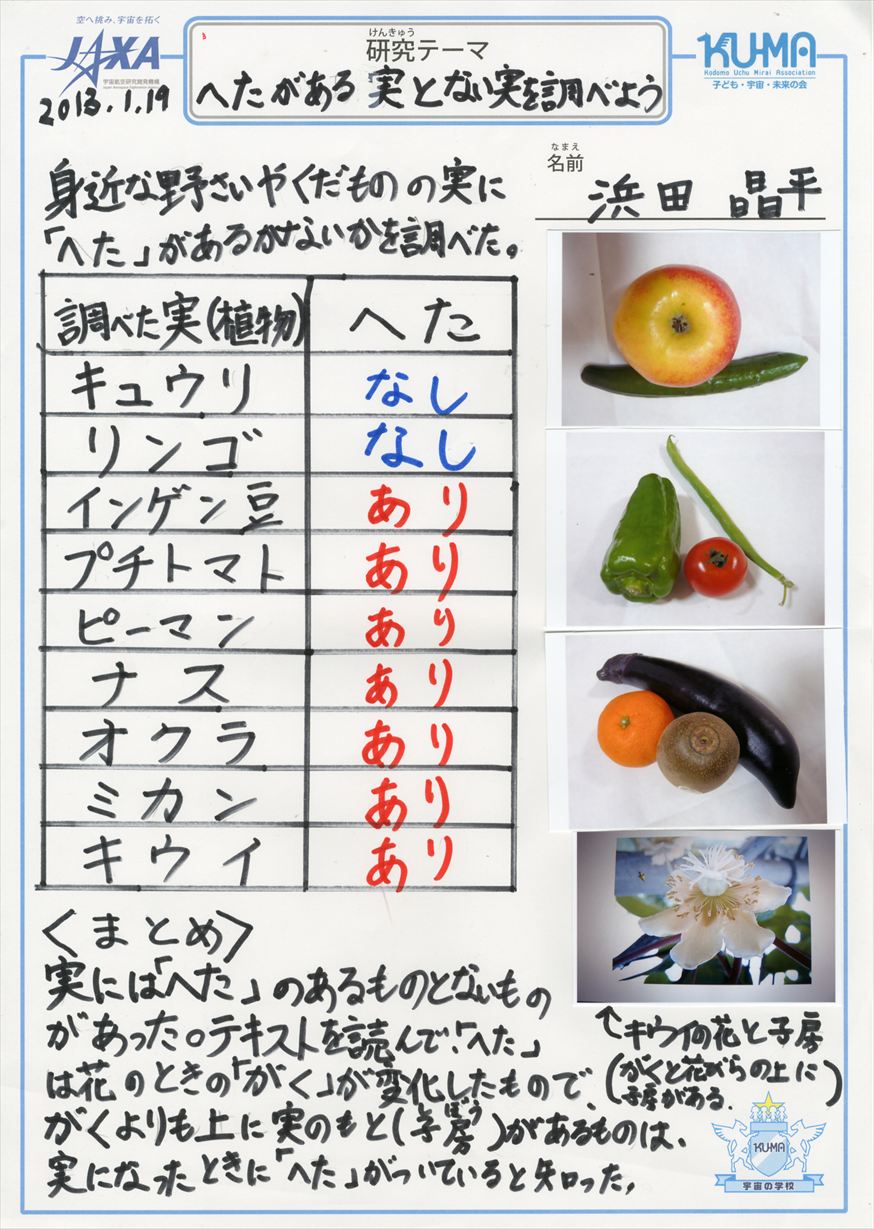 空へ挑み、宇宙を拓く
JAXA
宇宙航空研究開発機構
Japan Aerospace Exploration Agency
2013.1.19
けんきゅう
研究テーマ
へたがある実とない実を調べよう
KU-MA
Kodomo Uchu Mirai Association
子ども・宇宙・未来の会
なまえ
名前
浜田 晶平
身近な野さいやくだものの実に
「へた」があるかないかを調べた。
調べた実(植物) へた
キュウリ なし
リンゴ なし
インゲン豆 あり
プチトマト あり
ピーマン あり
ナス あり
オクラ あり
ミカン あり
キウイ あり
<まとめ>
実には「へた」のあるものとないもの
があった。テキストを読んで、「へた」
は花のときの「がく」が変化したもので、
がくよりも上に実のもと(子房)があるものは、
ぼう
実になったときに「へた」がついていると知った。
↑キウイの花と子房
(がくと花びらの上に
子房がある.)
KU-MA
宇宙の学校